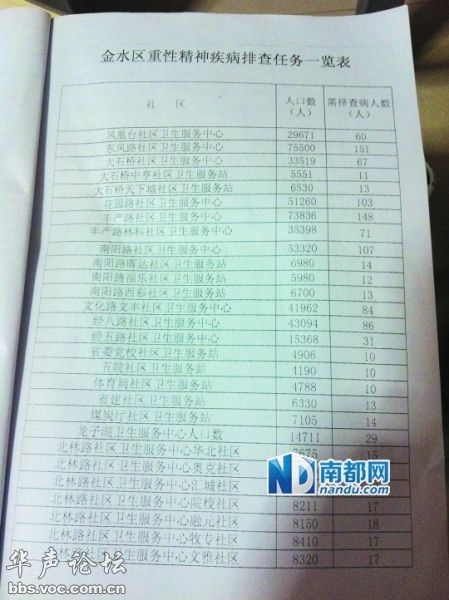 金水区重性精神疾病排查任务一览表
社 区 人口数（人） 需排查病人数（人）
凤凰台社区卫生服务中心 29671 60
东风路社区卫生服务中心 75500 151
大石桥社区卫生服务中心 33519 67
大石桥中亨社区卫生服务站 5551 11
大石桥天下城社区卫生服务站 6530 13
花园路社区卫生服务中心 51260 103
丰产路社区卫生服务中心 73836 148
丰产路林科社区卫生服务中心 35398 71
南阳路社区卫生服务中心 53320 107
南阳路晖达社区卫生服务站 6980 14
南阳路福乐社区卫生服务站 5980 12
南阳路西彩社区卫生服务站 6700 13
文化路文丰社区卫生服务中心 41962 84
经八路社区卫生服务中心 43094 86
经五路社区卫生服务中心 15368 31
省委党校社区卫生服务站 4906 10
五院社区卫生服务站 1190 10
体育局社区卫生服务站 4788 10
省建社区卫生服务站 6330 13
煤炭厅社区卫生服务站 7105 14
龙子湖卫生服务中心人口数 14711 29
北林路社区卫生服务中心华北社区 7675 15
北林路社区卫生服务中心奥克社区
北林路社区卫生服务中心汇城社区
北林路社区卫生服务中心院校社区 8211 17
北林路社区卫生服务中心融元社区 8150 18
北林路社区卫生服务中心牧专社区 8410 17
北林路社区卫生服务中心文雅社区 8320 17
ND 南都网
nandu.com
华声论坛
bbs.voc.com.cn